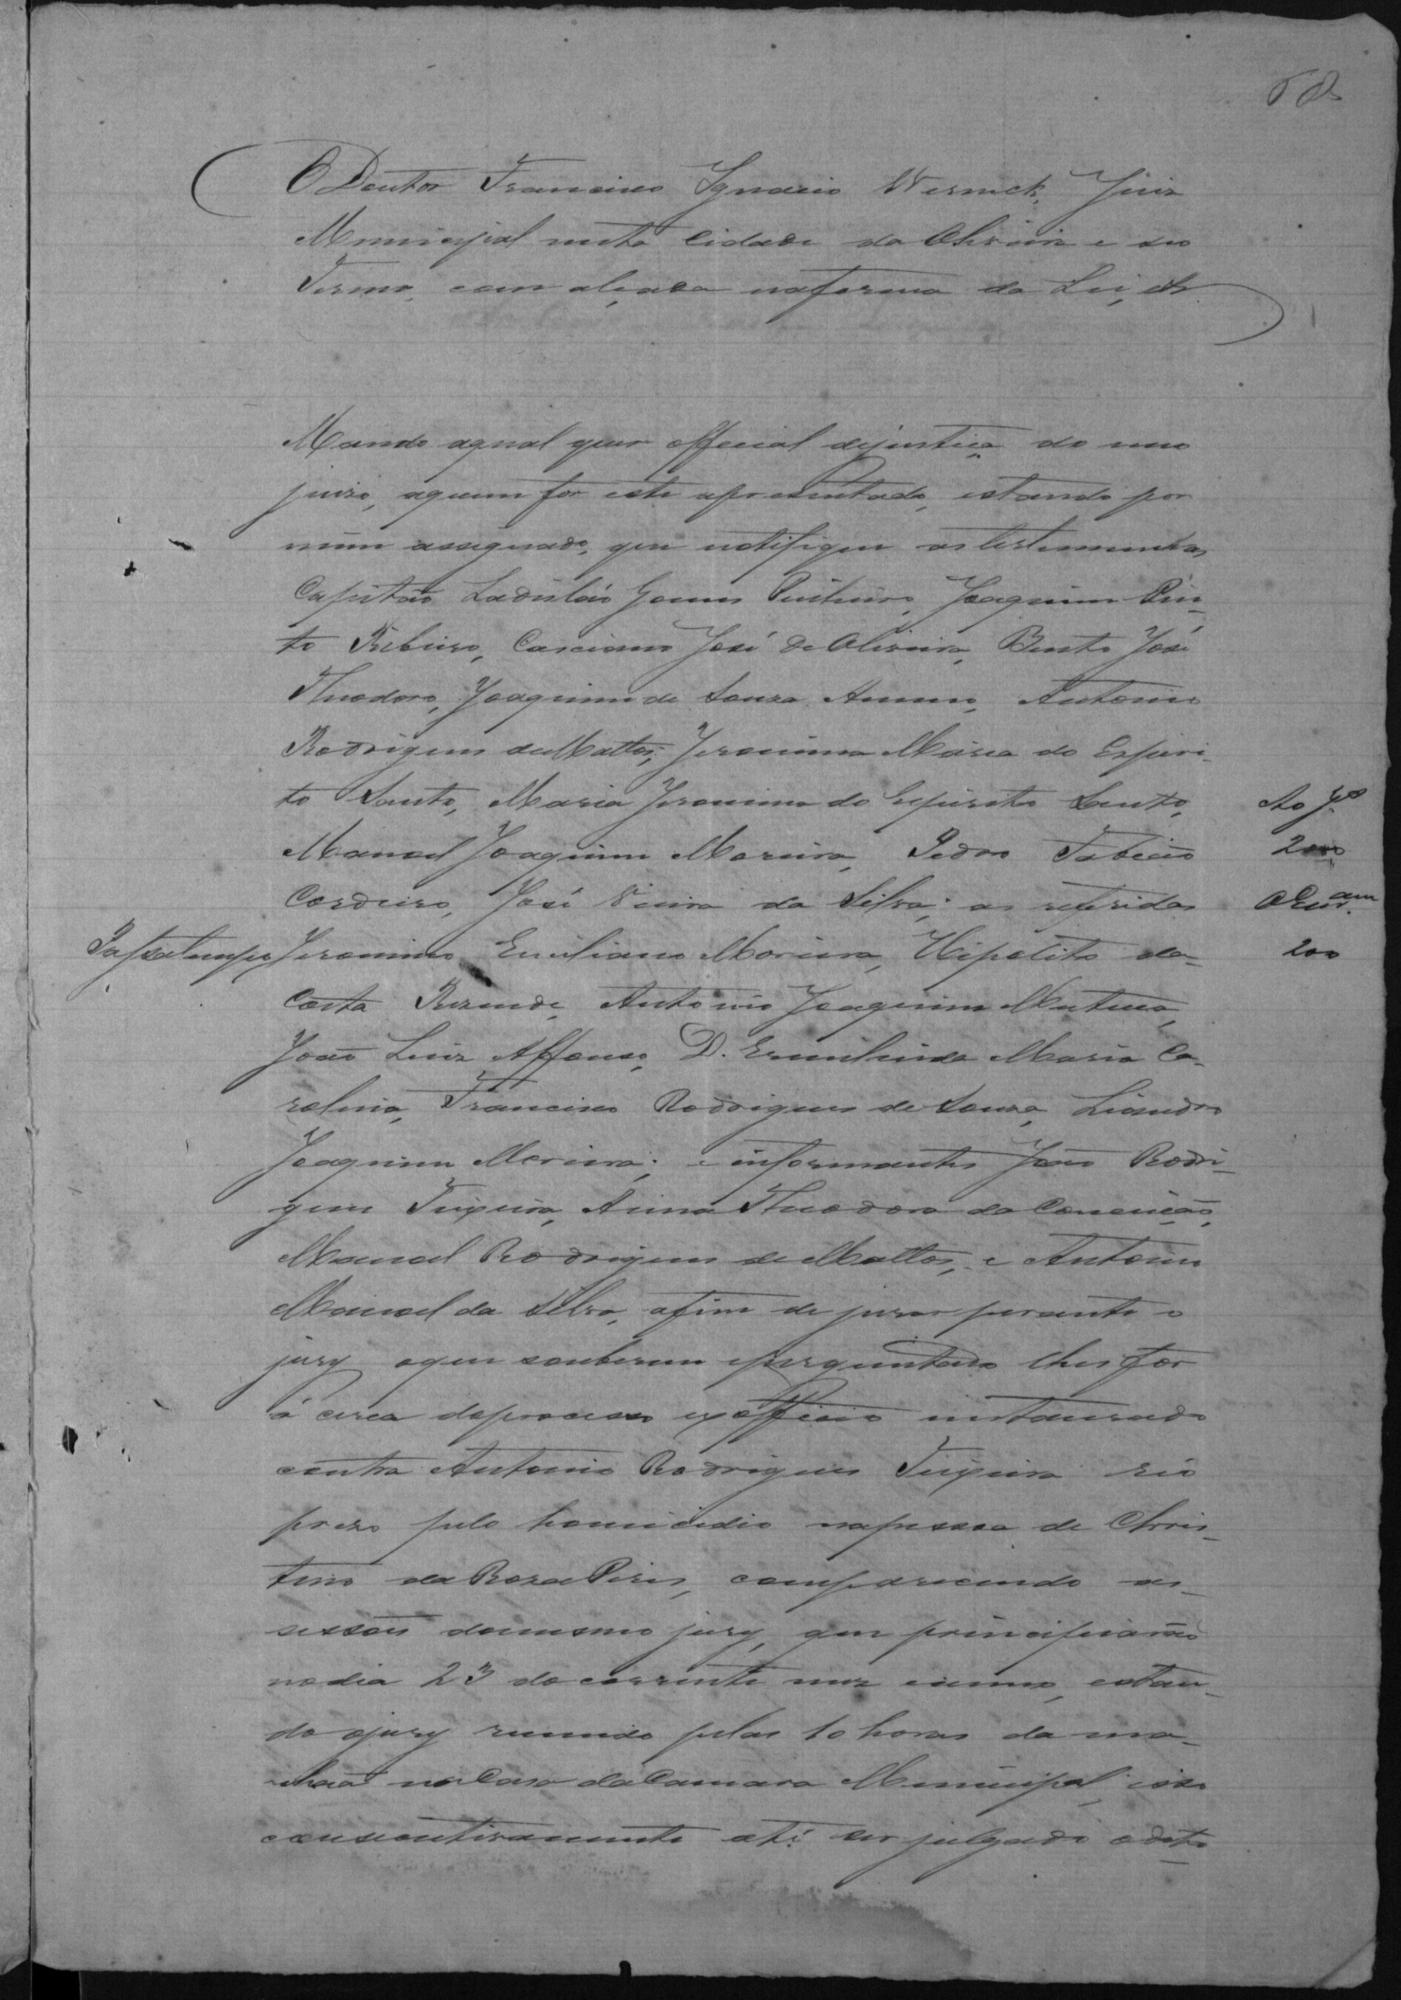 68
O Doutor Francisco Ignacio Werneck, Juiz
Municipal nesta Cidade da Oliveira e seo
Termo, com alçada na forma da Lei, &
Mando aqual quer official dejustiça do meu
juizo, aquem for este apresentado, estando por
mim assignado, que notifique as testemunhas
Capitão Ladisláo Gomes Pinheiro, Joaquim Pin-
to Ribeiro, Casciano José de Oliveira, Bento José
Theodoro, Joaquim de Souza Antonio
Rodrigues de Mattos, Jeronima Maria do Espiri-
to Santo, Maria Jeronima do Espirito Santo,
Ao J.
Manoel Joaquim Moreira, Pedro Fabião
2000
Cordeiro, José Vieira da Silva; as referidas
Passatempo Jeronimo Emiliano Moreira, Hipolito da
200
Costa Rezende, Antonio Joaquim
João Luiz Affonso, D. Ermelinda Maria Ca-
rolina, Francisco Rodrigues de Souza, Liandro
Joaquim Moreira; e informantes João Rodri-
gues Teixeira, Anna Theodora da Conceição,
Manoel Rodrigues de Mattos, e Antonio
Manoel da Silva, afim de jurar perante o
jury oque souberem eperguntado lhes for
á cerca doprocesso exofficio instaurado
contra Antonio Rodrigues Teixeira réo
prezo pelo homicidio napessoa de Chris-
tino da Roza Pires, comparecendo as
sessões domesmo jury, que principiarão
nodia 23 do corrente mez eanno, estan-
do ojury reunido pelas 10 horas da ma-
nhaã na Casa da Camara Municipal, isso
consecutivamente até ser julgado odito